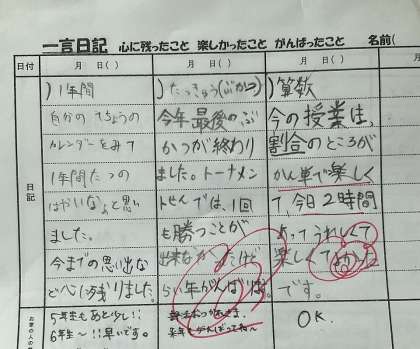 一言日記 心に残ったこと 楽しかったこと がんばったこと 名前(
日付 月 日() 月 日() 月 日()
日記
)1年間
自分の
カレンダーをみて
1年間たつの
はやいなぁと思い
ました。
今までの思い出な
ど心に残りました。
)たっきゅう(ぶかつ)
今年最後のぶ
かつが終わり
ました。トーナメン
トせんでは、1回
も勝つことが
出来なかったけど
らい年がんばりたい。
)算数
今の授業は、
割合のところが
かん単で楽しく
て、今日2時間
あってうれしくて
楽しくてよかった
です。
5年生もあと少し!!
6年生〜!!早いです。
来年もがんばってね
OK.